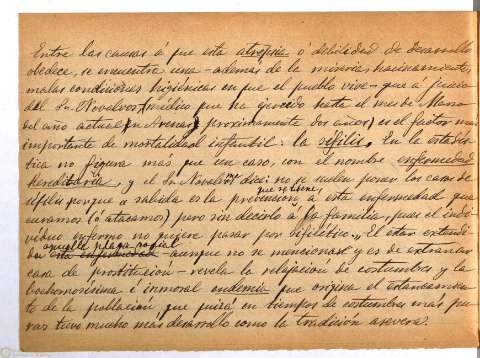 Entre las causas á que esta atrepsia ó debilidad de desarrollo
obedece, se encuentra una – además de la miseria, hacinamientos
malas condiciones higiénicas en que el pueblo vive – que á juicio
del Sr. Novelvos (médico que ha ejercido hasta el mes de Marzo
del año actual en Arenas proximamente dos años) es el factor mas
importante de mortalidad infantil: la sífilis. En la estadís-
tica no figura más que un caso, con el nombre enfermedad
hereditaria, y el Sr. Novelvos dice: no se suelen poner los casos de
sífilis porque es sabida es la prevención que se tiene á esta enfermedad que
curamos (ó atacamos) pero sin decirlo á la familia, pues el indi-
viduo enfermo no quiere pasar por sifilítico". El estar extendi-
da aquella plaga social esta enfermedad – aunque no se mencionase y es de extrañar
casa de prostitución – revela la relajación de costumbres y la
bochornosísima é inmoral endemia que origina el estancamien-
to de la población, que quizá en tiempos de costumbres mas pu-
ras tuvo mucho más desarrollo como la tradición asevera.